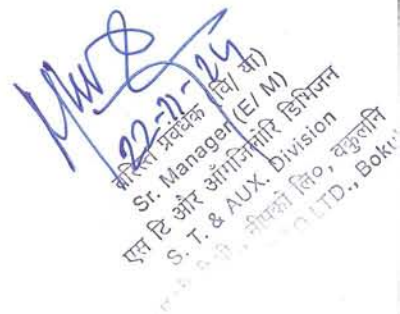 22-11-24
वरिष्ठ प्रबंधक (वि/ यां)
Sr. Manager (E/ M)
एस टि और ऑगजिलारि डिभिजन
S. T. & AUX. Division
लि०, वकुलनि
LTD., Boku